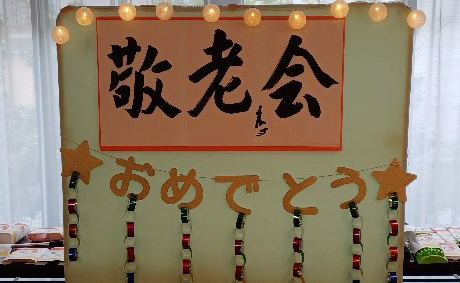 敬老会
おめでとう